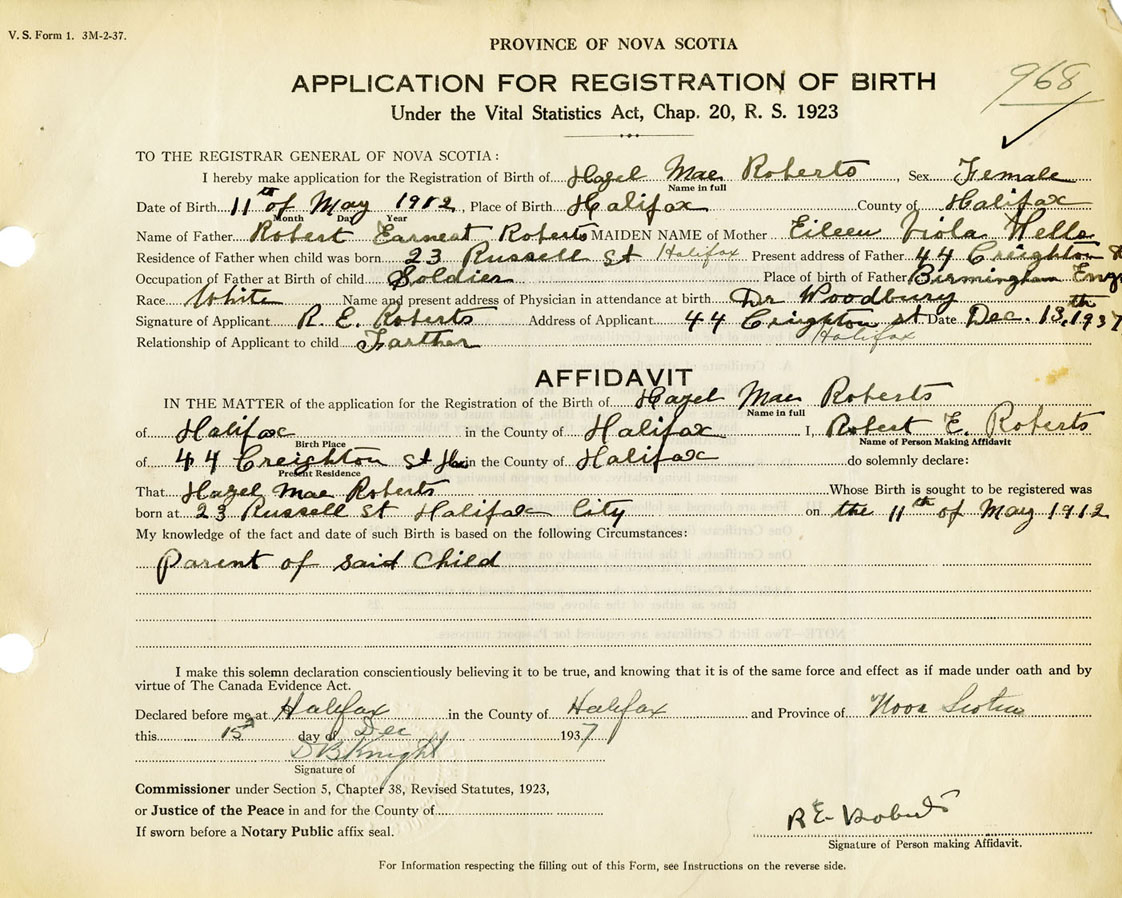 V. S. Form 1. 3M-2-37.
PROVINCE OF NOVA SCOTIA
968
APPLICATION FOR REGISTRATION OF BIRTH
Under the Vital Statistics Act, Chap. 20, R. S. 1923
TO THE REGISTRAR GENERAL OF NOVA SCOTIA:
I hereby make application for the Registration of Birth of Hazel Mae Roberts, Sex Female
Name in full
Date of Birth 11th of May 1912, Place of Birth Halifax County of Halifax
Month Day Year
Name of Father Robert Earnest Roberts MAIDEN NAME of Mother Eileen Viola Wells
Residence of Father when child was born 23 Russell St Halifax Present address of Father 44 Creighton
Occupation of Father at Birth of child Soldier Place of birth of Father Birmingham Eng
Race White Name and present address of Physician in attendance at birth Dr Woodbury
Signature of Applicant R. E. Roberts Address of Applicant 44 Crighton st Date Dec. 13th 1937
Halifax
Relationship of Applicant to child Farther
AFFIDAVIT
IN THE MATTER of the application for the Registration of the Birth of Hazel Mae Roberts
Name in full
of Halifax in the County of Halifax I, Robert E. Roberts
Birth Place Name of Person Making Affidavit
of 44 Creighton St Hx in the County of Halifax do solemnly declare:
Present Residence
That Hazel Mae Roberts Whose Birth is sought to be registered was
born at 23 Russell St Halifax City on the 11th of May 1912
My knowledge of the fact and date of such Birth is based on the following Circumstances:
Parent of said Child
I make this solemn declaration conscientiously believing it to be true, and knowing that it is of the same force and effect as if made under oath and by
virtue of The Canada Evidence Act.
Declared before me at Halifax in the County of Halifax and Province of Nova Scotia
this 15th day of Dec 1937
D B Knight
Signature of
Commissioner under Section 5, Chapter 38, Revised Statutes, 1923,
or Justice of the Peace in and for the County of
If sworn before a Notary Public affix seal.
R E Roberts
Signature of Person making Affidavit.
For Information respecting the filling out of this Form, see Instructions on the reverse side.